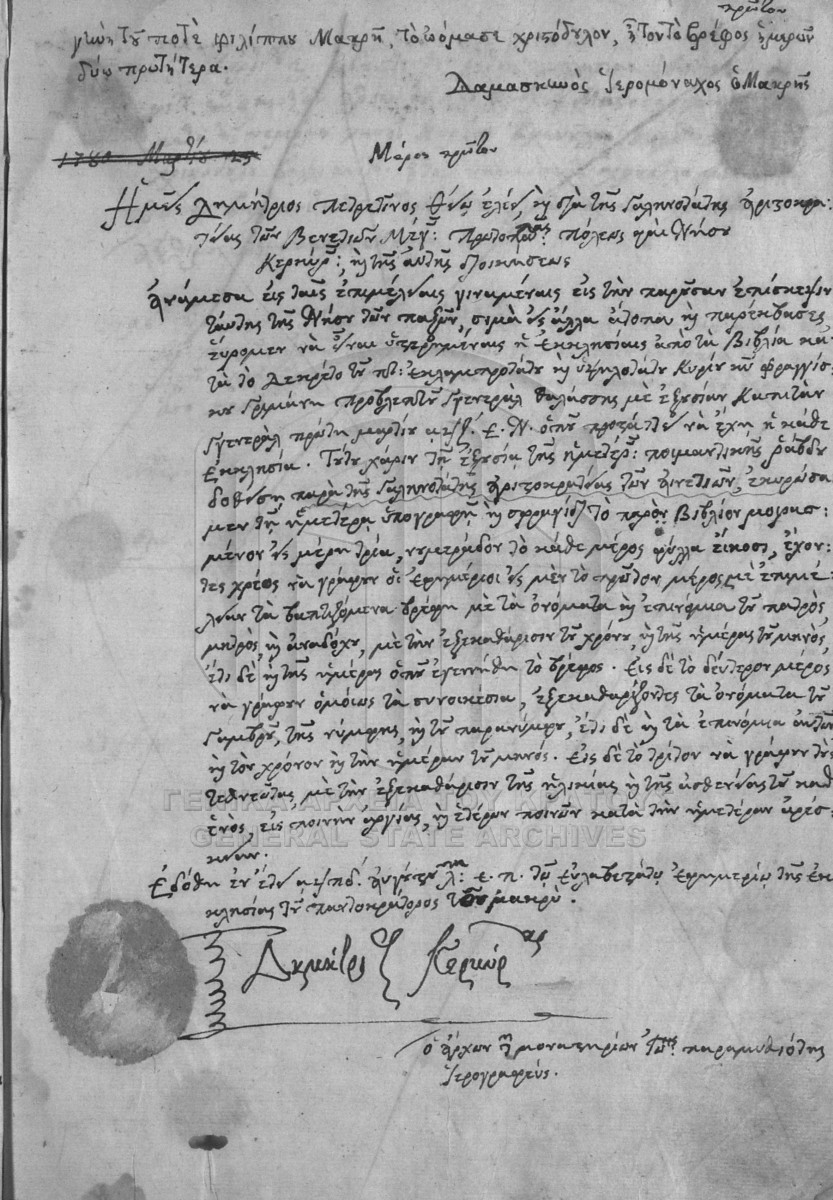 πρῶτον
γυνὴ τοῦ ποτὲ φιλίππου Μακρῆ, τὸ ὠνόμασε χριστόδουλον, ἦτον τὸ βρέφος ἡμερῶν
δύω πρωτήτερα.
Δαμασκηνὸς ἱερομόναχος ὁ Μακρῆς
Μέρος πρῶτον
Ἡμεῖς Δημήτριος Πετρετῖνος θείῳ ἐλέει, καὶ διὰ τῆς Γαληνοτάτης ἀριστοκρα:
τείας τῶν Βενετιῶν Μέγ: Πρωτοπαπᾶς πόλεως καὶ Νήσου
Κερκύρ:, καὶ τῆς αὐτῆς διοικήσεως
ἀνάμεσα εἰς ταῖς ἐπιμέλειαις γιναμέναις εἰς τὴν παροῦσαν ἐπίσκεψιν
ταύτης τῆς Νήσου τῶν παξῶν, σιμὰ εἰς ἄλλα ἄτοπα καὶ παρέκβασες
εὕρομεν νὰ εἶναι ὑστερημέναις ἡ ἐκκλησίαις ἀπὸ τὰ Βιβλία κα
τὰ τὸ Δεκρέτο τοῦ ποτ: ἐκλαμπροτάτου καὶ ὑψηλοτάτου Κυρίου κυρ φραγγίσ:
κου Γριμάνη Προβλεπτοῦ Γγενεράλ θαλάσσης μὲ ἐξουσίαν Καπιτὰν
Γγενεράλ πρώτῃ μαρτίου Ε. Ν. ὁποῦ προστάττει νὰ ἔχῃ ἡ κάθε
Ἐκκλησία. Τούτου χάριν τῇ ἐξουσίᾳ τῆς ἡμετέρ: ποιμαντικῆς ῥάβδου
δοθείσῃ παρὰ τῆς Γαληνοτάτης ἀριστοκρατείας τῶν ἑνετιῶν, ἐκυρώσα
μεν τῇ ἡμετέρᾳ ὑπογραφῇ καὶ σφραγίδι τὸ παρὸν Βιβλίον μοιρασ:
μένον εἰς μέρη τρία, νουμεράδου τὸ κάθε μέρος φύλλα εἴκοσι, ἔχον:
τες χρέος νὰ γράφουν οἱ ἐφημέριοι εἰς μὲν τὸ πρῶτον μέρος μὲ ἐπιμέ:
λειαν τὰ βαπτιζόμενα βρέφη μὲ τὰ ὀνόματα καὶ ἐπίνομια τοῦ πατρὸς
μητρὸς καὶ ἀναδόχου, μὲ τὴν ἐξεκαθάρισιν τοῦ χρόνου, καὶ τῆς ἡμέρας τοῦ μηνὸς,
ἔτι δὲ καὶ τῆς ἡμέρας ὁποῦ ἐγεννήθη τὸ βρέφος. Εἰς δὲ τὸ δεύτερον μέρος
νὰ γράφουν ὁμοίως τὰ συνοικέσια, ἐξεκαθαρίζοντες τὰ ὀνόματα τοῦ
Γαμβροῦ, τῆς νύμφης, καὶ τοῦ παρανύμφου, ἔτι δὲ καὶ τὰ ἐπινόμια αὐτῶν
καὶ τὸν χρόνον καὶ τὴν ἡμέραν τοῦ μηνός. Εἰς δὲ τὸ τρίτον νὰ γράφουν τοὺς
τεθνεῶτας μὲ τὴν ἐξεκαθάρισιν τῆς ἡλικίας καὶ τῆς ἀσθενείας τοῦ καθ
ἑνὸς, εἰς ποινὴν ἀργίας, καὶ ἑτέρων ποινῶν κατὰ τὴν ἡμετέραν ἀρέσ:
κειαν.
Ἐδόθη ἐν ἔτει αψπδ. αὐγούστου λ: ε. π. τῷ εὐλαβεστάτῳ ἐφημερίῳ τῆς ἐκ
κλησίας τοῦ παντοκράτορος μακρὺ.
Δημήτριος Κερκύρας
ὁ ἄρχων τῶν μοναστηρίων παραμυθιότης
ἱερογραφεύς.
ΓΕΝΙΚΑ ΑΡΧΕΙΑ ΤΟΥ ΚΡΑΤΟΥΣ
GENERAL STATE ARCHIVES